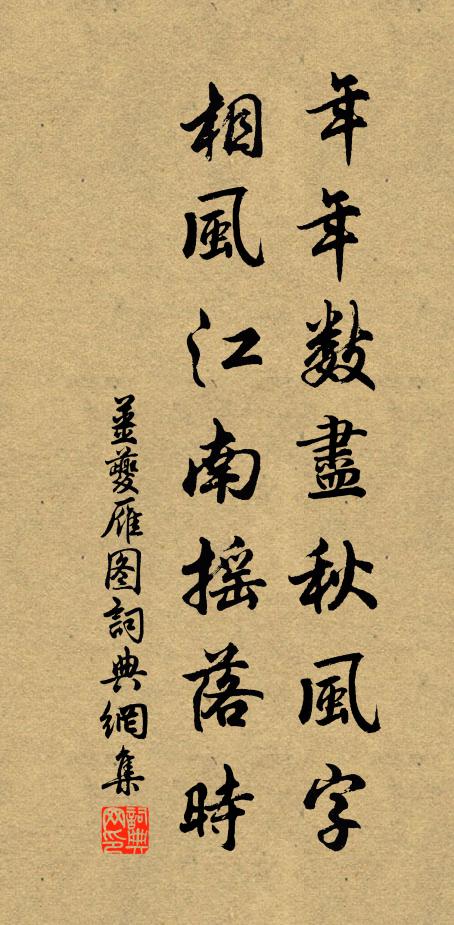 年年數盡秋風字
相風江南摇落時
姜夔雁图詞典網集
詞典网印